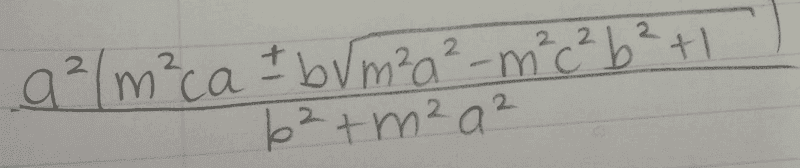 \frac{a^2(m^2ca \pm b\sqrt{m^2a^2 - m^2c^2b^2 + 1})}{b^2 + m^2a^2}